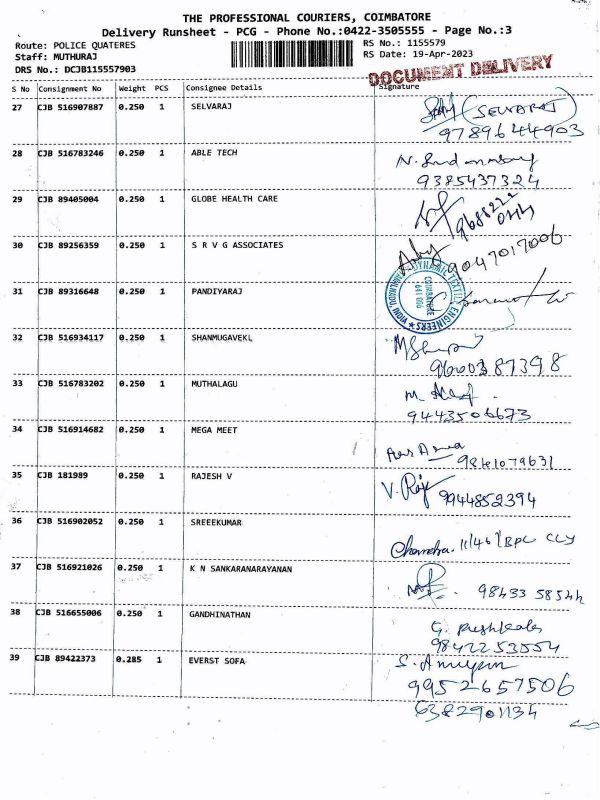 THE PROFESSIONAL COURIERS, COIMBATORE
Delivery Runsheet - PCG - Phone No.:0422-3505555 - Page No.:3
Route: POLICE QUATERES
RS No.: 1155579
Staff: MUTHURAJ
RS Date: 19-Apr-2023
DRS No.: DCJB115557903
DOCUMENT DELIVERY
S No Consignment No Weight PCS Consignee Details Signature
27 CJB 516907887 0.250 1 SELVARAJ (SELVARAJ)
9789644903
28 CJB 516783246 0.250 1 ABLE TECH
9385437324
29 CJB 89405004 0.250 1 GLOBE HEALTH CARE
30 CJB 89256359 0.250 1 S R V G ASSOCIATES
9047017006
31 CJB 89316648 0.250 1 PANDIYARAJ
COIMBATORE
32 CJB 516934117 0.250 1 SHANMUGAVEKL
9600387398
33 CJB 516783202 0.250 1 MUTHALAGU
9443506673
34 CJB 516914682 0.250 1 MEGA MEET
9841079631
35 CJB 181989 0.250 1 RAJESH V
9944852394
36 CJB 516902052 0.250 1 SREEEKUMAR
Chandra.
37 CJB 516921026 0.250 1 K N SANKARANARAYANAN
98433 58544
38 CJB 516655006 0.250 1 GANDHINATHAN
9842253554
39 CJB 89422373 0.285 1 EVERST SOFA
9952657506
6382901134